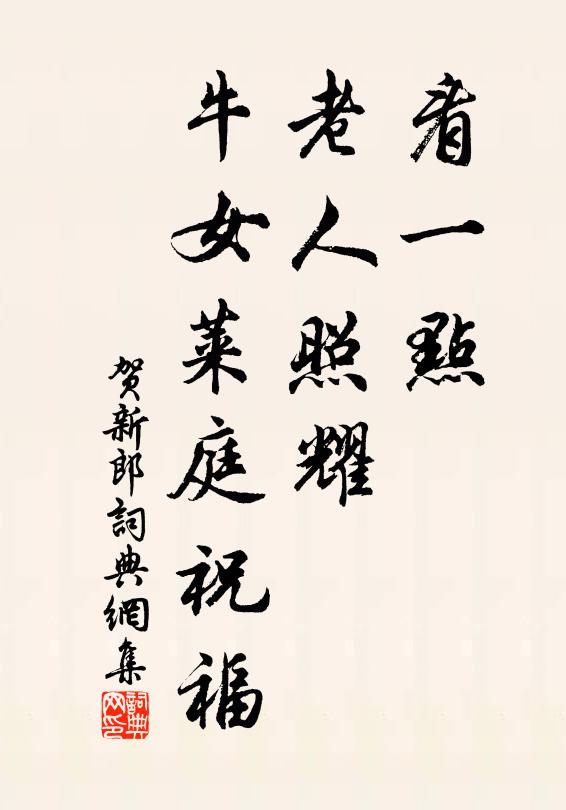 看一點
老人照耀
牛女菜庭祝福
贺新郎詞典網集
詞典网印